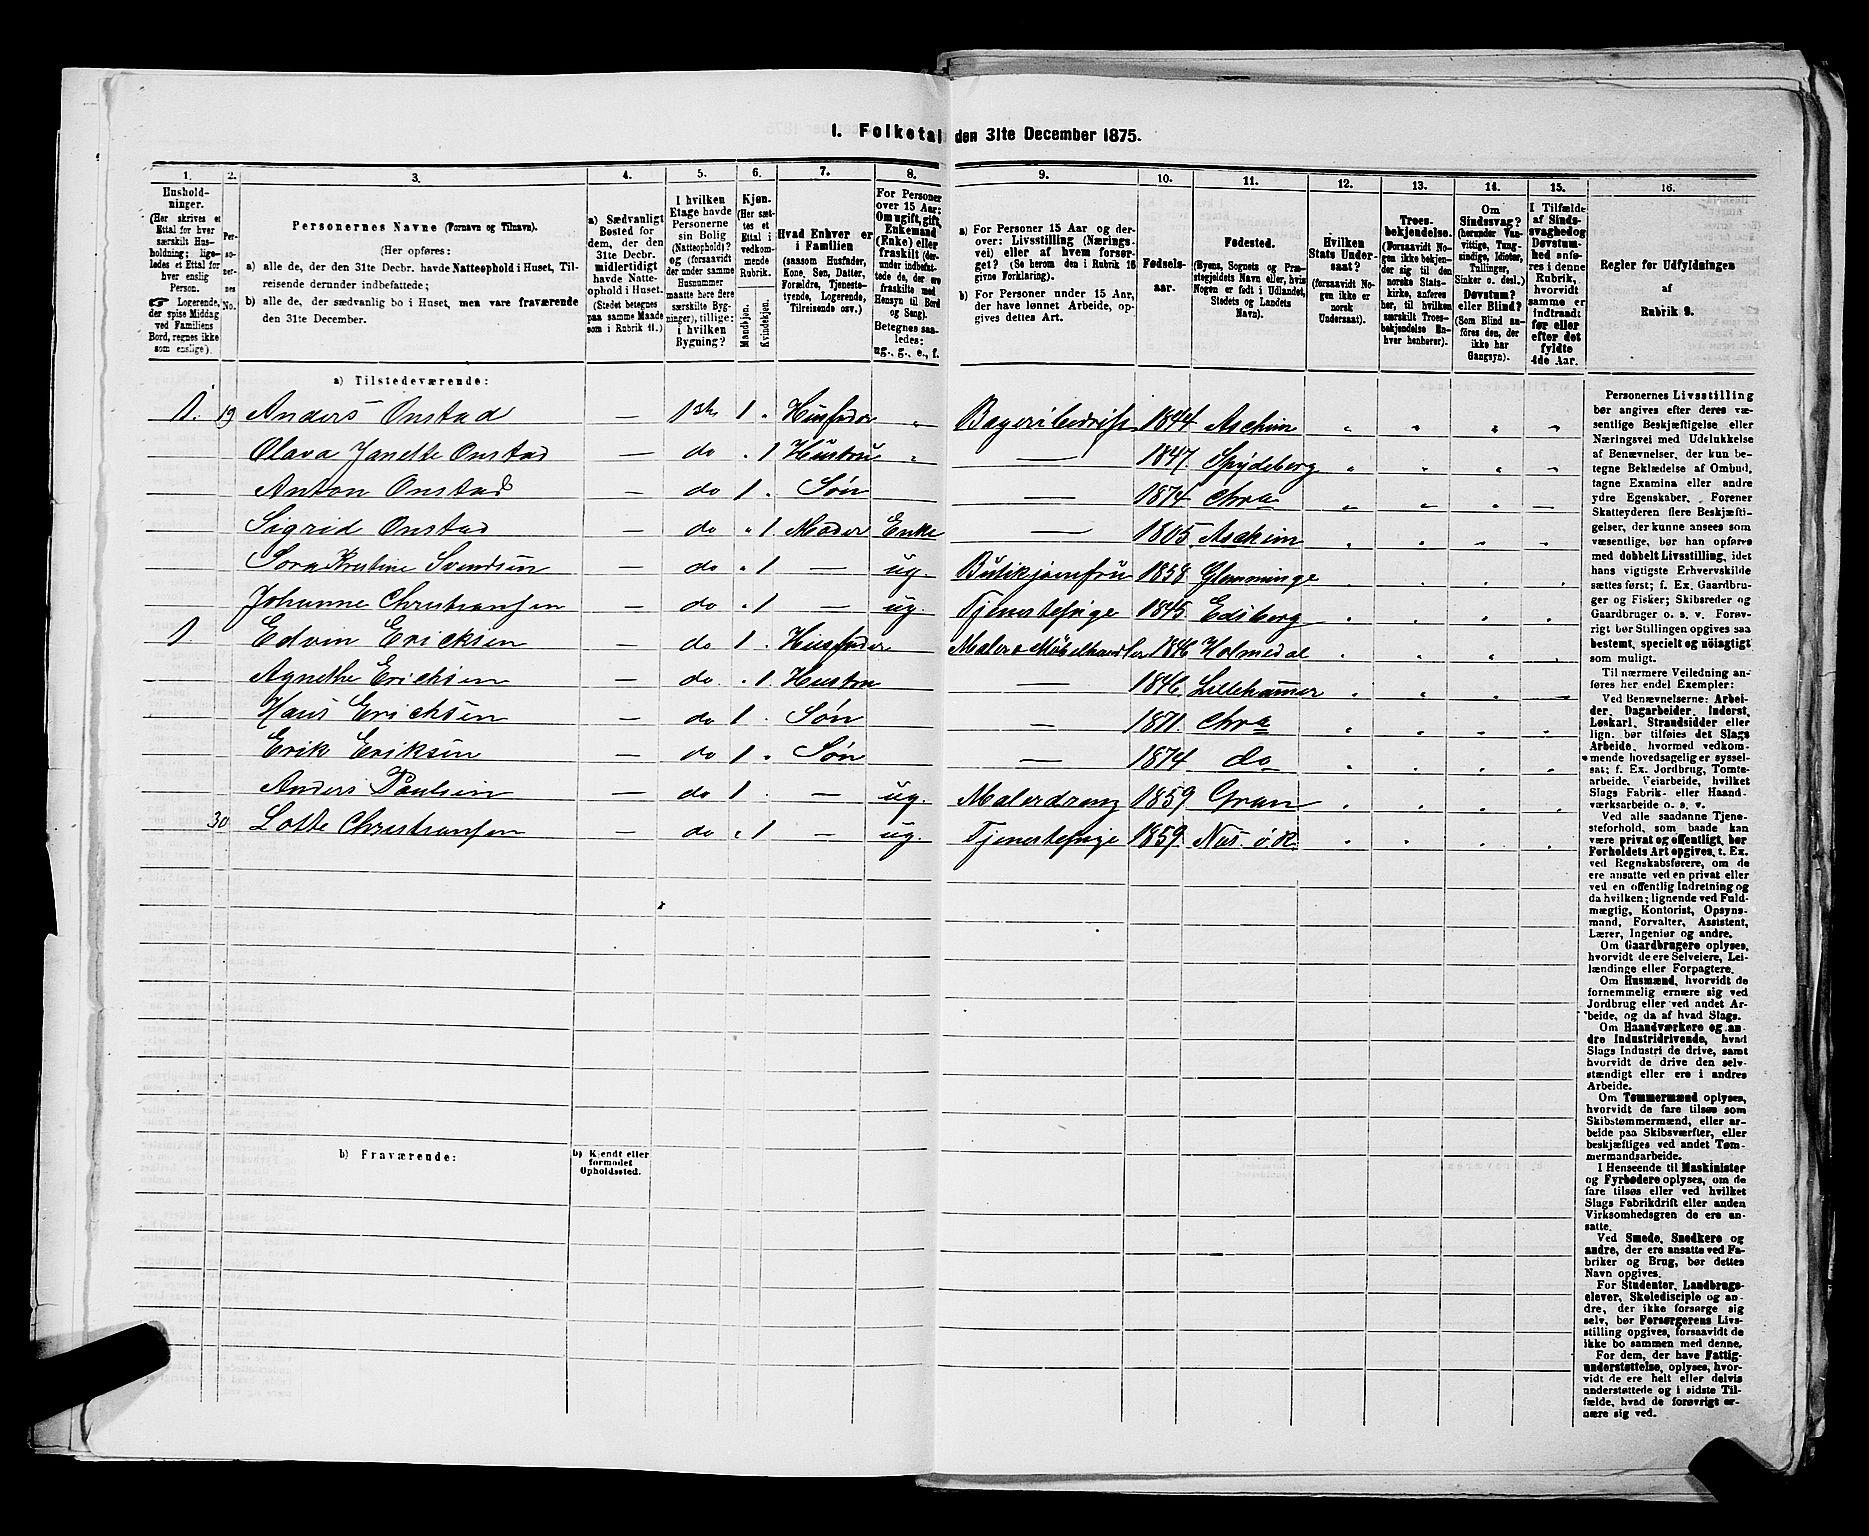 I. Folketal den 31te December 1875.
1. 2. 3. 4. 5. 6. 7. 8. 9. 10. 11. 12. 13. 14. 15. 16.
Husholdninger.
(Her skrives et Ettal for hver særskilt Husholdning; ligeledes et Ettal for hver enslig Person.
☞ Logerende, der spise Middag ved Familiens Bord, regnes ikke som enslige).
Personernes No.
Personernes Navne (Fornavn og Tilnavn).
(Her opføres:
a) alle de, der den 31te Decbr. havde Natteophold i Huset, Tilreisende derunder indbefattede;
b) alle de, der sædvanlig bo i Huset, men vare fraværende den 31te December.
a) Sædvanligt Bosted for dem, der den 31te Decbr. midlertidigt havde Natteophold i Huset. (Stedet betegnes paa samme Maade som i Rubrik 11.)
I hvilken Etage havde Personerne sin Bolig (Natteophold)? og (forsaavidt der under samme Husnummer maatte høre flere særskilte Bygninger), tillige: i hvilken Bygning?
Kjøn. (Her sættes et Ettal i vedkommende Rubrik.
Mandkjøn.
Kvindekjøn.
Hvad Enhver er i Familien (saasom Husfader, Kone, Søn, Datter, Forældre, Tjenestetyende, Logerende, Tilreisende osv.)
For Personer over 15 Aar; Om ugift, gift, Enkemand (Enke) eller fraskilt (derunder indbefattede de, der ere fraskilte med Hensyn til Bord og Seng). Betegnes saaledes: ug., g., e., f.
a) For Personer 15 Aar og derover: Livsstilling (Næringsvei) eller af hvem forsørget? (Se herom den i Rubrik 16 givne Forklaring).
b) For Personer under 15 Aar, der have lønnet Arbeide, opgives dettes Art.
Fødselsaar.
Fødested. (Byens, Sognets og Præstegjeldets Navn eller, hvis Nogen er født i Udlandet, Stedets og Landets Navn).
Hvilken Stats Undersaat? (forsaavidt Nogen ikke er norsk Undersaat).
Troesbekjendelse. (Forsaavidt Nogen ikke bekjender sig til den norske Statskirke, anføres her, til hvilken særskilt Troesbekjendelse Enhver henhører).
Om Sindssvag? (herunder Vanvittige, Tungsindige, Idioter, Tullinger, Sinker o. desl.) Døvstum? eller Blind? (Som Blind anføres den, der ikke har Gangsyn).
I Tilfælde af Sindssvaghed og Døvstumhed anføres i denne Rubrik, hvorvidt samme er indtraadt før eller efter det fyldte 4de Aar.
Regler for Udfyldningen af Rubrik 9.
a) Tilstedeværende:
1. 19 Anders Onstad — 1ste 1 „ Husfader „ Bageribedrift 1844 Aschim
Olava Janette Onstad — do „ 1 Hustru „ — 1847. Spydeberg
Anton Onstad — do 1 . Søn — 1874 Chra
Sigrid Onstad — do „ 1. Moder Enke — 1805. Aschim
Sora Kristine Svendsen — do „ 1 — ug. Butikjomfru 1858 Glemminge
Johanne Christiansen — do „ 1 — ug. Tjenestepige 1845. Edsberg
1 Edvin Ericksen — do 1 . Husfader Maler & Møbelhandler 1846 Holmedal
Agnethe Erichsen — do . 1. Hustru — 1846. Lillehammer
Hans Ericksen — do 1 . Søn — 1871. Chra
Erik Eriksen — do 1 „ Søn — 1874 do
Anders Paulsen — do 1 . — ug. Malerdreng 1859 Gran
30 Lotte Christiansen — do „ 1 — ug. Tjenestepige 1859.
b) Fraværende:
b) Kjendt eller formodet Opholdssted.
Personernes Livsstilling
bør angives efter deres væsentlige
Beskjæftigelse eller
Næringsvei med Udelukkelse
af Benævnelser, der kun betegne
Beklædelse af Ombud,
tagne Examina eller andre
ydre Egenskaber. Forener
Skatteyderen flere Beskjæftigelser,
der kunne ansees som
væsentlige, bør han opføres
med dobbelt Livsstilling, idet
hans vigtigste Erhvervskilde
sættes først; f. Ex. Gaardbruger
og Fisker; Skibsreder og
Gaardbruger o. s. v. Forøvrigt
bør Stillingen opgives saa
bestemt, specielt og nøiagtigt
som muligt.
Til nærmere Veiledning anføres
her endel Exempler:
Ved Benævnelserne: Arbeider,
Dagarbeider, Inderst,
Løskarl, Strandsidder eller
lign. bør tilføies det Slags
Arbeide, hvormed vedkommende
hovedsagelig er sysselsat;
f. Ex. Jordbrug, Tomtearbeide,
Veiarbeide, hvilket
Slags Fabrik- eller Haandværksarbeide
o. s. v.
Ved alle saadanne Tjenesteforhold,
som baade kan
være privat og offentligt, bør
Forholdets Art opgives, t. Ex.
ved Regnskabsførere, om de
ere ansatte ved en privat eller
ved en offentlig Indretning og
da hvilken; lignende ved Fuldmægtig,
Kontorist, Opsynsmand,
Forvalter, Assistent,
Lærer, Ingeniør og andre.
Om Gaardbrugere oplyses,
hvorvidt de ere Selveiere, Leilændinge
eller Forpagtere.
Om Husmænd, hvorvidt de
fornemmelig ernære sig ved
Jordbrug eller ved andet Arbeide,
og da af hvad Slags.
Om Haandværkere og andre
Industridrivende, hvad
Slags Industri de drive, samt
hvorvidt de drive den selvstændigt
eller ere i andres
Arbeide.
Om Tømmermænd oplyses,
hvorvidt de fare tilsøs som
Skibstømmermænd, eller arbeide
paa Skibsværfter, eller
beskjæftiges ved andet Tømmermandsarbeide.
I Henseende til Maskinister
og Fyrbødere oplyses, om de
fare tilsøs eller ved hvilket
Slags Fabrikdrift eller anden
Virksomhedsgren de ere ansatte.
Ved Smede, Snedkere og
andre, der ere ansatte ved Fabriker
og Brug, bør dettes
Navn opgives.
For Studenter, Landbrugselever,
Skoledisciple og andre,
der ikke forsørge sig
selv, bør Forsørgerens Livsstilling
opgives, forsaavidt de
ikke bo sammen med denne.
For dem, der have Fattigunderstøttelse,
oplyses, hvorvidt
de ere helt eller delvis
understøttede og i sidste Tilfælde,
hvad de forøvrigt ernære
sig ved.